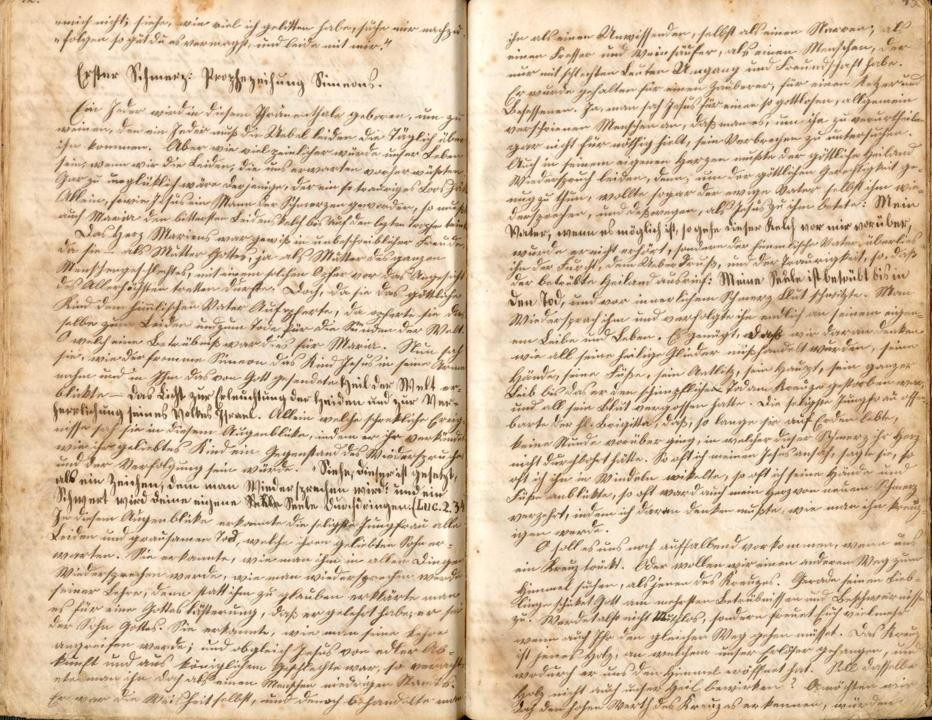 mich nicht; siehe, wie viel ich gelitten habe, suche mir nachzu-
folgen so gut du es vermagst, und leide mit mir."
Erster Schmerz: Prophezeihung Simeons.
Ein Jeder wird in diesem Thränenthale geboren, um zu
weinen, denn ein Jeder muß die Uebel leiden die Täglich über
ihn kommen. Aber wie viel peinlicher würde unser Leben
sein, wenn wir die Leiden, die uns erwarten vorher wüßten
Gar zu unglüklich wäre derjenige, der ein so trauriges Loos
Allein, sowie Jesus ein Mann der Schmerzen geworden, so mußte
auch Maria den bittersten Leidenskelch bis auf den letzten Tropfen
Das Herz Mariens war gewiß in unbeschreiblicher Freude,
da sie als Mutter Gottes, ja als Mutter des ganzen
Menschengeschlechtes mit einem solchen Opfer vor das Angesicht
des Allerhöchsten tretten durfte. Doch, da sie das göttliche
Kind dem himmlischen Vater Aufopferte, da opferte sie das
selbe zum Leiden und zum Tode für die Sünden der Welt.
O welch eine Betrübniß war dies für Maria. Nun sah
sie, wie der fromme Simeon das Kind Jesus in seine Arme
nahm und in Ihm das von Gott gesendete Heil der Welt er-
blikte — das Licht zur Erleuchtung der Heiden und zur Ver-
herrlichung seines Volkes Israel. Allein welche schrekliche Ereig-
nisse sah sie in diesem Augenblike, indem er ihr verkündete
wie ihr geliebtes Kind ein Gegenstand des Wiederspruches
und der Verfolgung sein würde. „Siehe, dieser ist gesetzt,
als ein Zeichen, dem man Wiedersprechen wird: und ein
Schwert wird deine eigene Seele durchdringen (Luc. 2. 34
In diesem Augenblike erkannte die seligste Jungfrau alle
Leiden und grausamen Tod, welche ihren geliebten Sohn er-
warten. Sie erkannte, wie man ihm in allen Dingen
Wiedersprechen werde, wie man wiedersprechen werde
seiner Lehre, denn statt ihm zu glauben erklärte man
es für eine Gotteslästerung, daß er gelehrt habe, er sei
der Sohn Gottes. Sie erkannte, wie man seine Lehre
angreifen werde; und obgleich Jesus von edler Ab-
kunft und aus königlichem Geschlechte war, so verach-
tete man ihn doch als einen Menschen niedrigen Standes.
Er war die Weisheit selbst, und denoch behandelte man
ihn als einen Unwissenden, selbst als einen Narren, als
einen Fresser und Weinsäufer, als einen Menschen, der
nur mit schlechten Leuten Umgang und Freundschaft habe.
Er wurde gehalten für einen Zauberer, für einen Ketzer und
Besessenen. Ja, man sah Jesus für einen so gottlosen, allgemein
verschrienen Menschen an, daß man es, um ihn zu verurtheilen
gar nicht für nöthig hielt, sein Verbrechen zu untersuchen.
Auch in seinem eigenen Herzen mußte der göttliche Heiland
Wiederspruch leiden, denn, um der göttlichen Gerechtigkeit ge-
nug zu thun, wollte sogar der ewige Vater selbst ihm wie-
dersprechen, und deßwegen, als Jesus zu ihm betete: Mein
Vater, wenn es möglich ist, so gehe dieser Kelch vor mir vorüber,
wurde er nicht erhört, sondern der himmlische Vater überließ
ihn der Furcht, dem Ueberdruß, und der Traurigkeit, so, daß
der betrübte Heiland ausrief: Meine Seele ist betrübt bis in
den Tod, und vor innerlichem Schmerz Blut schwitzte. Man
Wiedersprach ihm und verfolgte ihn endlich an seinem eigen-
en Leibe und Leben. Es genügt, daß wir daran denken
wie all seine heilige Glieder mißhandelt wurden, seine
Hände, seine Füße, sein Antlitz, sein Haupt, sein ganzer
Leib bis daß er den schimpflichen Tod am Kreuze gestorben war,
und all sein Blut vergossen hatte. Die seligste Jungfrau offen-
barte der hl. Brigitta, daß, so lange sie auf Erden lebte,
keine Stunde vorüber ging, in welcher dieser Schmerz ihr Herz
nicht durchbohrt hätte. So oft ich meinen Jesus ansah, sagte sie, so
oft ich ihn in Windeln wikelte, so oft ich seine Hände und
Füße anblikte, so oft ward auch mein Herz von neuem Schmerz
verzehrt, indem ich daran denken mußte, wie man ihn kreuz-
igen werde.
O soll es uns noch auffallend vorkommen, wenn uns
ein Kreuz drükt. Oder wollen wir einen anderen Weg zum
Himmel suchen, als jenen des Kreuzes. Gerade seinen Lieb-
lingen schiket Gott am mehrsten Betrübnisse und Beschwernisse
zu. Werdet also nicht Muthlos, sondern freuet Euch vielmehr
wenn auch Ihr den gleichen Weg gehen müsset. Das Kreuz
ist jenes Holz, an welchem unser Erlöser gehangen, und
wodurch er uns den Himmel eröffnet hat. Soll dasselbe
Holz nicht auch unser Heil bewirken? O möchten wir
doch den hohen Werth des Kreuzes erkennen, würden